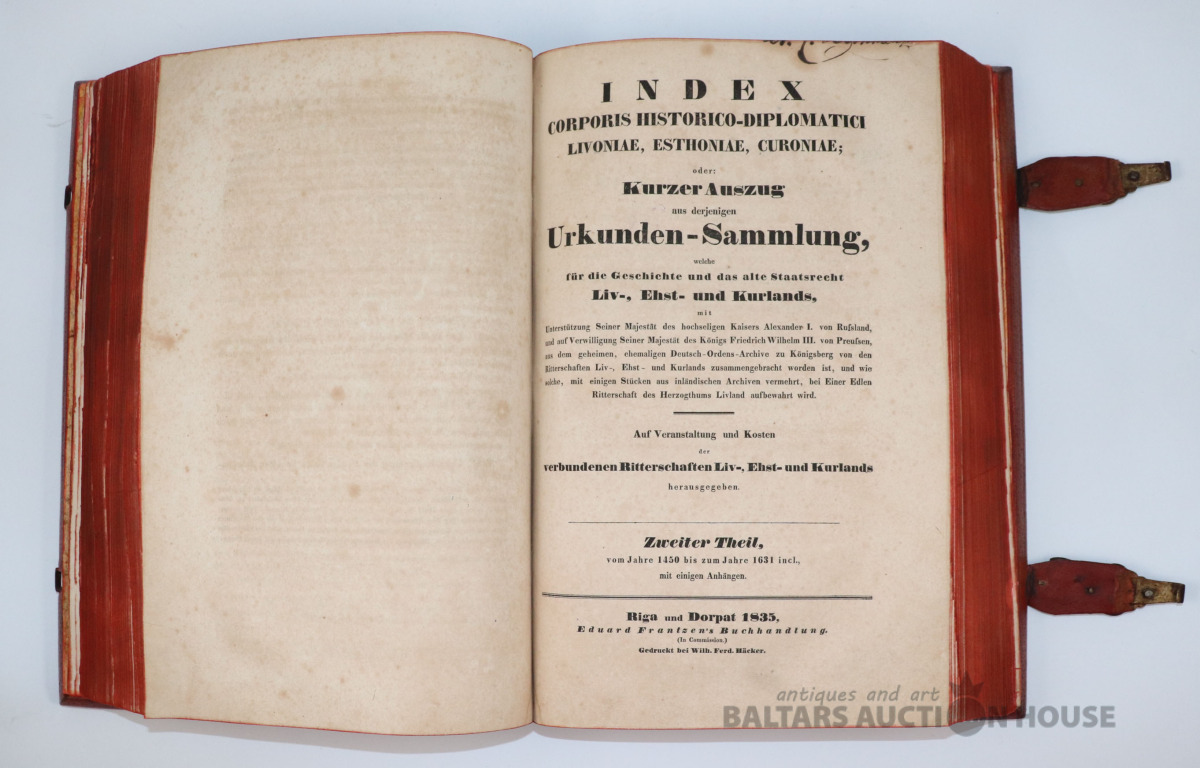 INDEX
CORPORIS HISTORICO-DIPLOMATICI
LIVONIAE, ESTHONIAE, CURONIAE;
oder:
Kurzer Auszug
aus derjenigen
Urkunden-Sammlung,
welche
für die Geschichte und das alte Staatsrecht
Liv-, Ehst- und Kurlands,
mit
Unterstützung Seiner Majestät des hochseligen Kaisers Alexander I. von Rufsland,
und auf Verwilligung Seiner Majestät des Königs Friedrich Wilhelm III. von Preufsen,
aus dem geheimen, ehemaligen Deutsch-Ordens-Archive zu Königsberg von den
Ritterschaften Liv-, Ehst- und Kurlands zusammengebracht worden ist, und wie
solche, mit einigen Stücken aus inländischen Archiven vermehrt, bei Einer Edlen
Ritterschaft des Herzogthums Livland aufbewahrt wird.
Auf Veranstaltung und Kosten
der
verbundenen Ritterschaften Liv-, Ehst- und Kurlands
herausgegeben.
Zweiter Theil,
vom Jahre 1450 bis zum Jahre 1631 incl.,
mit einigen Anhängen.
Riga und Dorpat 1835,
Eduard Frantzen's Buchhandlung.
(In Commission.)
Gedruckt bei Wilh. Ferd. Häcker.
antiques and art
BALTARS AUCTION HOUSE